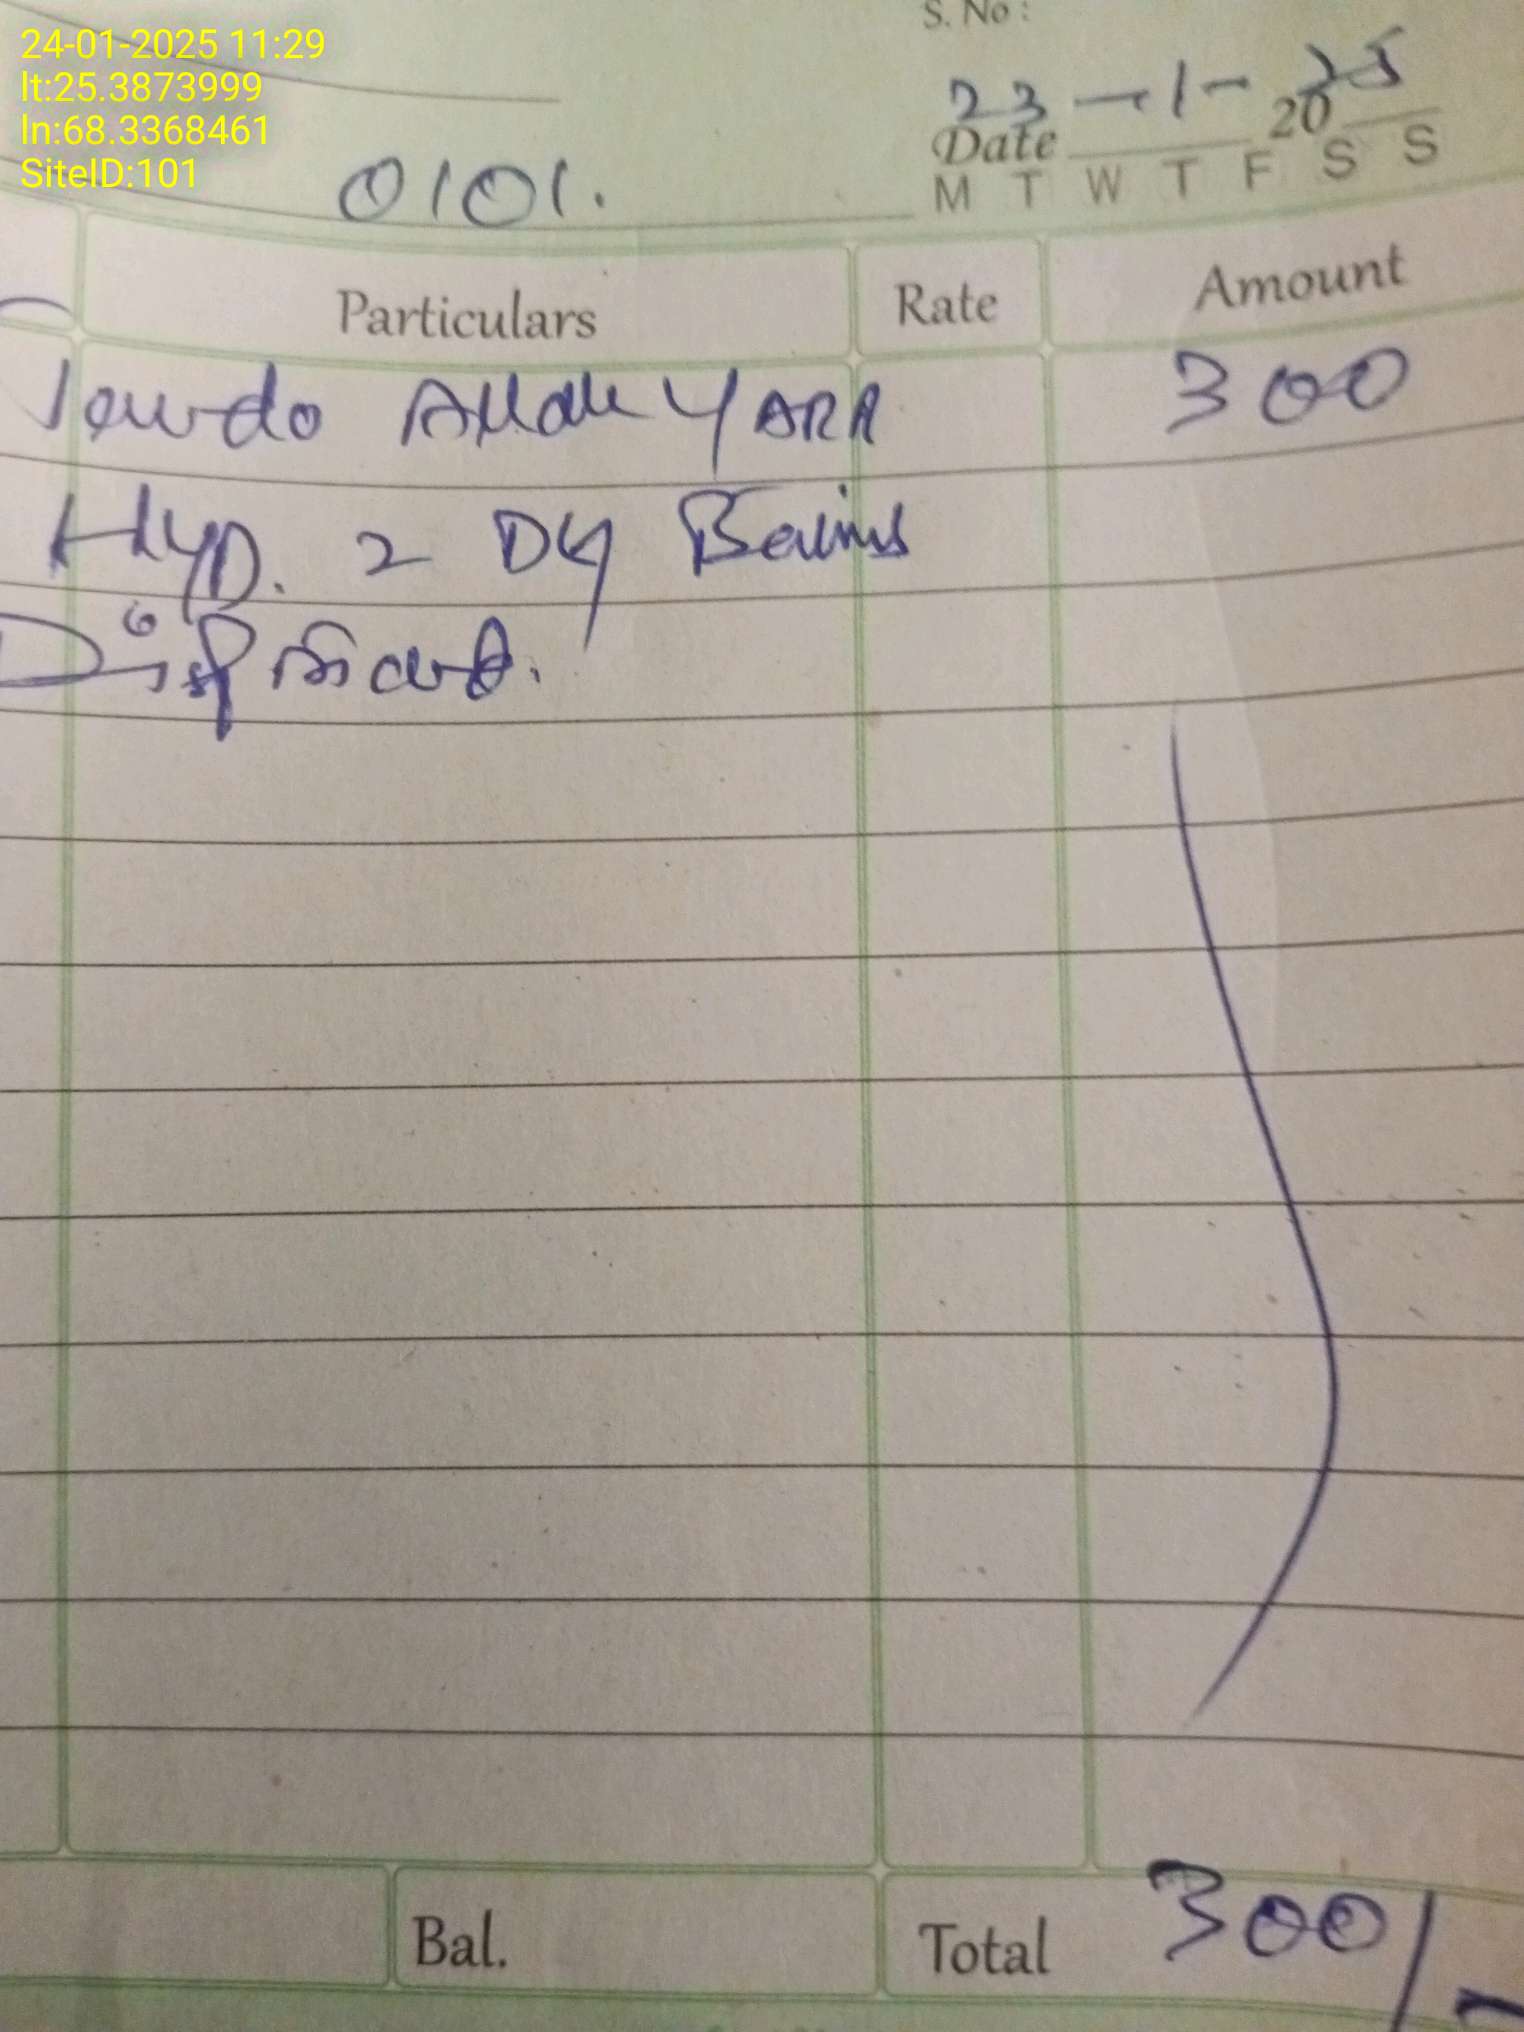 24-01-2025 11:29
lt:25.3873999
ln:68.3368461
SiteID:101
S. No :
23 - 1 - 25
Date 20
M T W T F S S
0101.
Particulars Rate Amount
Tando Allah YARR 300
HYD. 2 Dy
Bal. Total 300/-